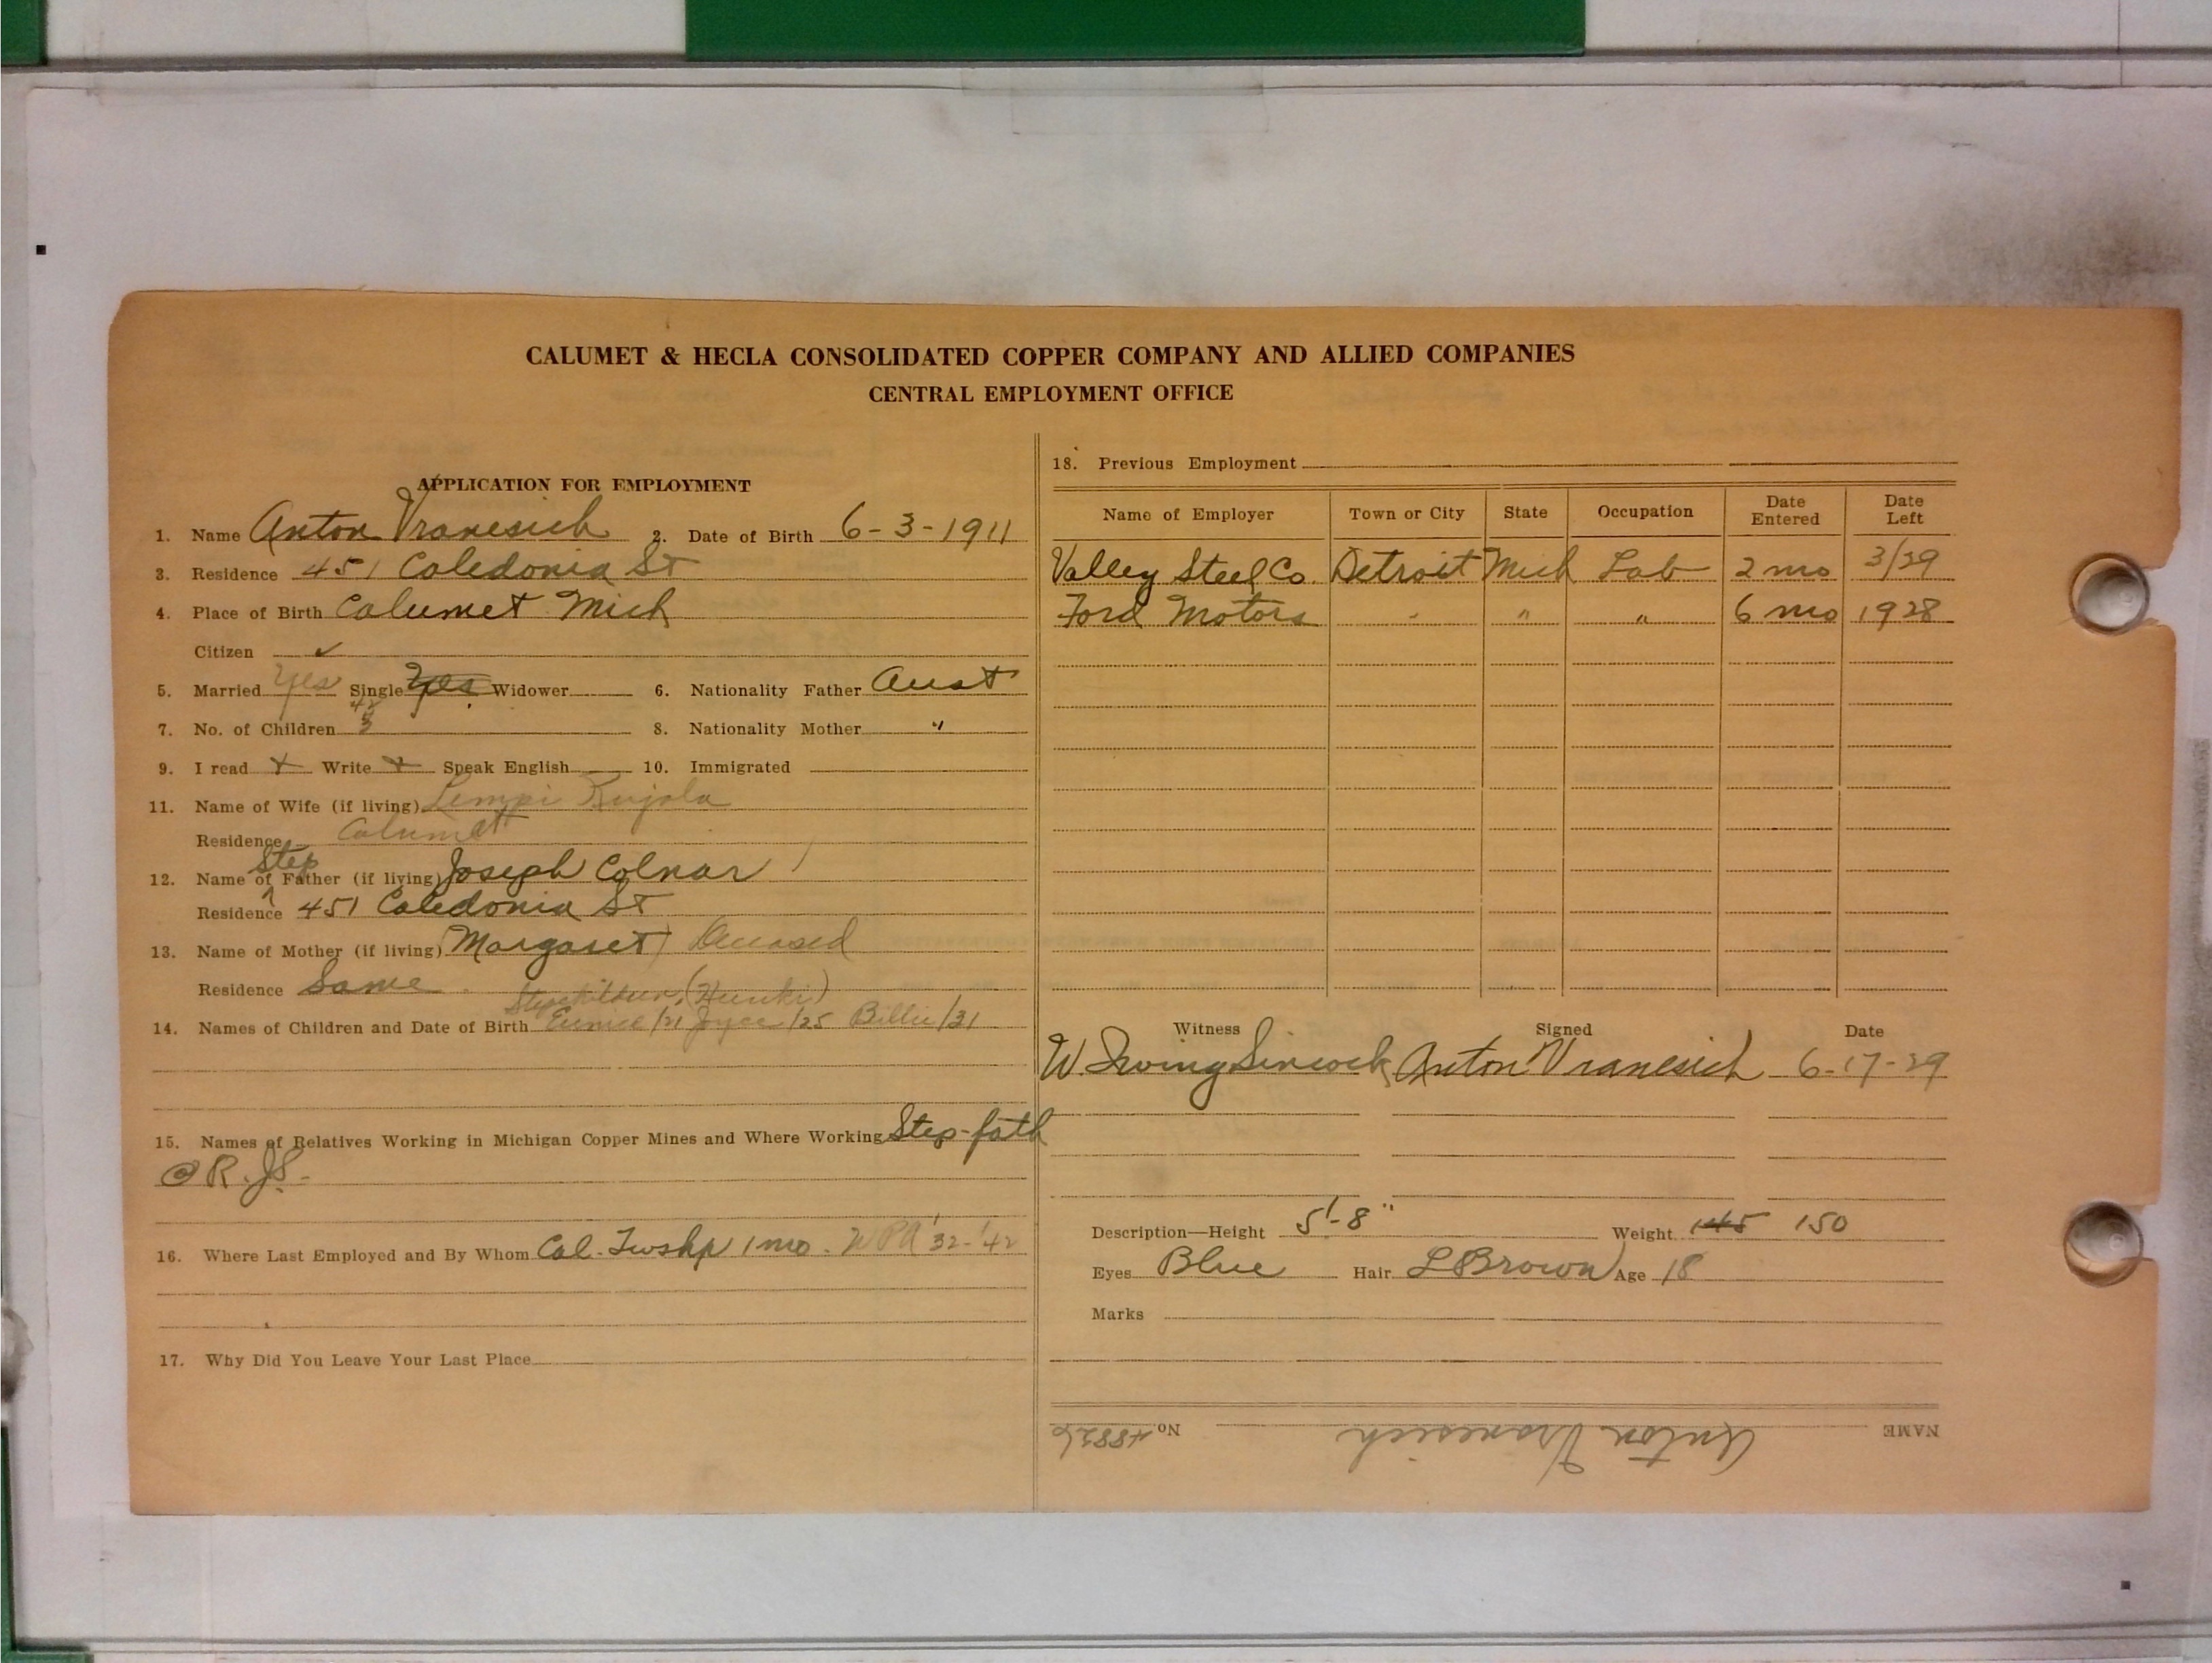 CALUMET & HECLA CONSOLIDATED COPPER COMPANY AND ALLIED COMPANIES
CENTRAL EMPLOYMENT OFFICE
APPLICATION FOR EMPLOYMENT
1. Name Anton Vranesich 2. Date of Birth 6-3-1911
3. Residence 451 Caledonia St
4. Place of Birth Calumet Mich
Citizen ✓
5. Married Yes Single Yes Widower 6. Nationality Father Aust
7. No. of Children 3 8. Nationality Mother "
9. I read x Write x Speak English 10. Immigrated
11. Name of Wife (if living) Lempi Kujala
Residence Calumet
Step
12. Name of Father (if living) Joseph Colnar
Residence 451 Caledonia St
13. Name of Mother (if living) Margaret Deceased
Residence Same
Stepchildren (Heinki)
14. Names of Children and Date of Birth Eunice /21 Joyce /25 Billie /31
15. Names of Relatives Working in Michigan Copper Mines and Where Working Step-fath
@ R. JS.
16. Where Last Employed and By Whom Cal. Twshp 1 mo. WPA '32-'42
17. Why Did You Leave Your Last Place
18. Previous Employment
Name of Employer Town or City State Occupation Date Entered Date Left
Valley Steel Co. Detroit Mich Lab 2 mo 3/29
Ford Motors " " " 6 mo 1928
Witness Signed Date
W. Irving Sincock Anton Vranesich 6-17-29
Description—Height 5'-8" Weight 145 150
Eyes Blue Hair L Brown Age 18
Marks
NAME Anton Vranesich No. 48826